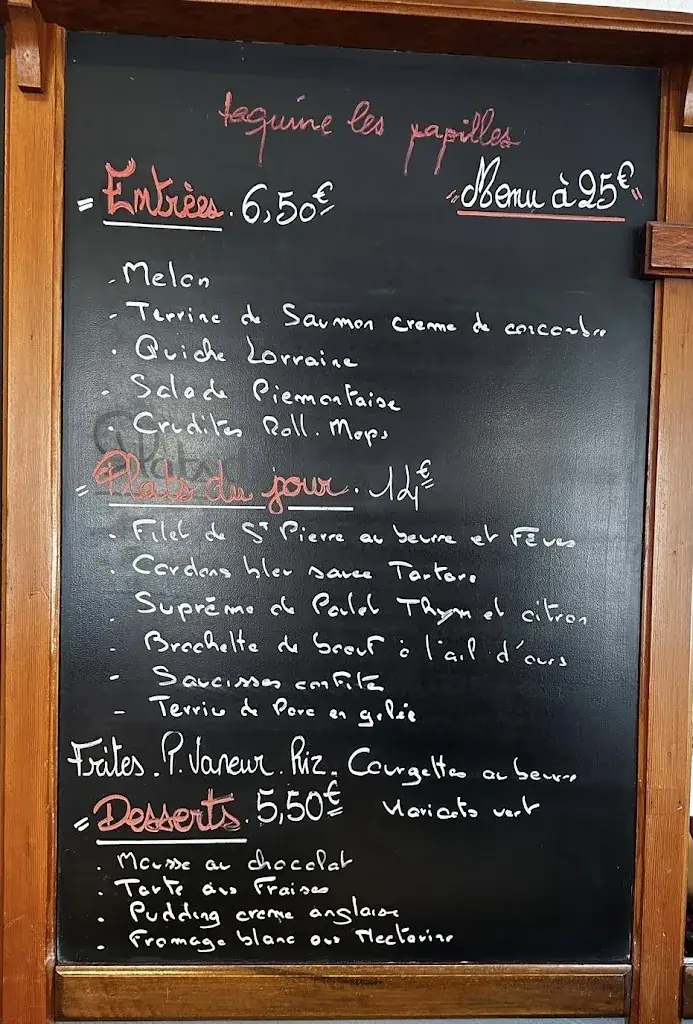 taquine les papilles
= Entrées. 6,50€
"Menu à 25€"
- Melon
- Terrine de Saumon creme de concombre
- Quiche Lorraine
- Salade Piemontaise
- Crudites Roll. Mops
= Plats du jour. 14€
- Filet de St Pierre au beurre et Fêves
- Cordons bleu sauce Tartare
- Suprême de Poulet Thym et citron
- Brochette de boeuf à l'ail d'ours
- Saucisses confite
- Terrine de Porc en gelée
Frites. P. Vapeur. Riz. Courgettes au beurre
Haricots vert
= Desserts. 5,50€
- Mousse au chocolat
- Tarte aux Fraises
- Pudding creme anglaise
- Fromage blanc aux Nectarine